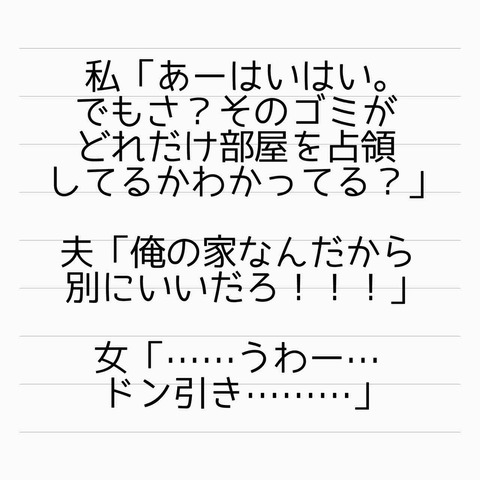 私「あーはいはい。
でもさ？そのゴミが
どれだけ部屋を占領
してるかわかってる？」
夫「俺の家なんだから
別にいいだろ！！！」
女「……うわー…
ドン引き………」